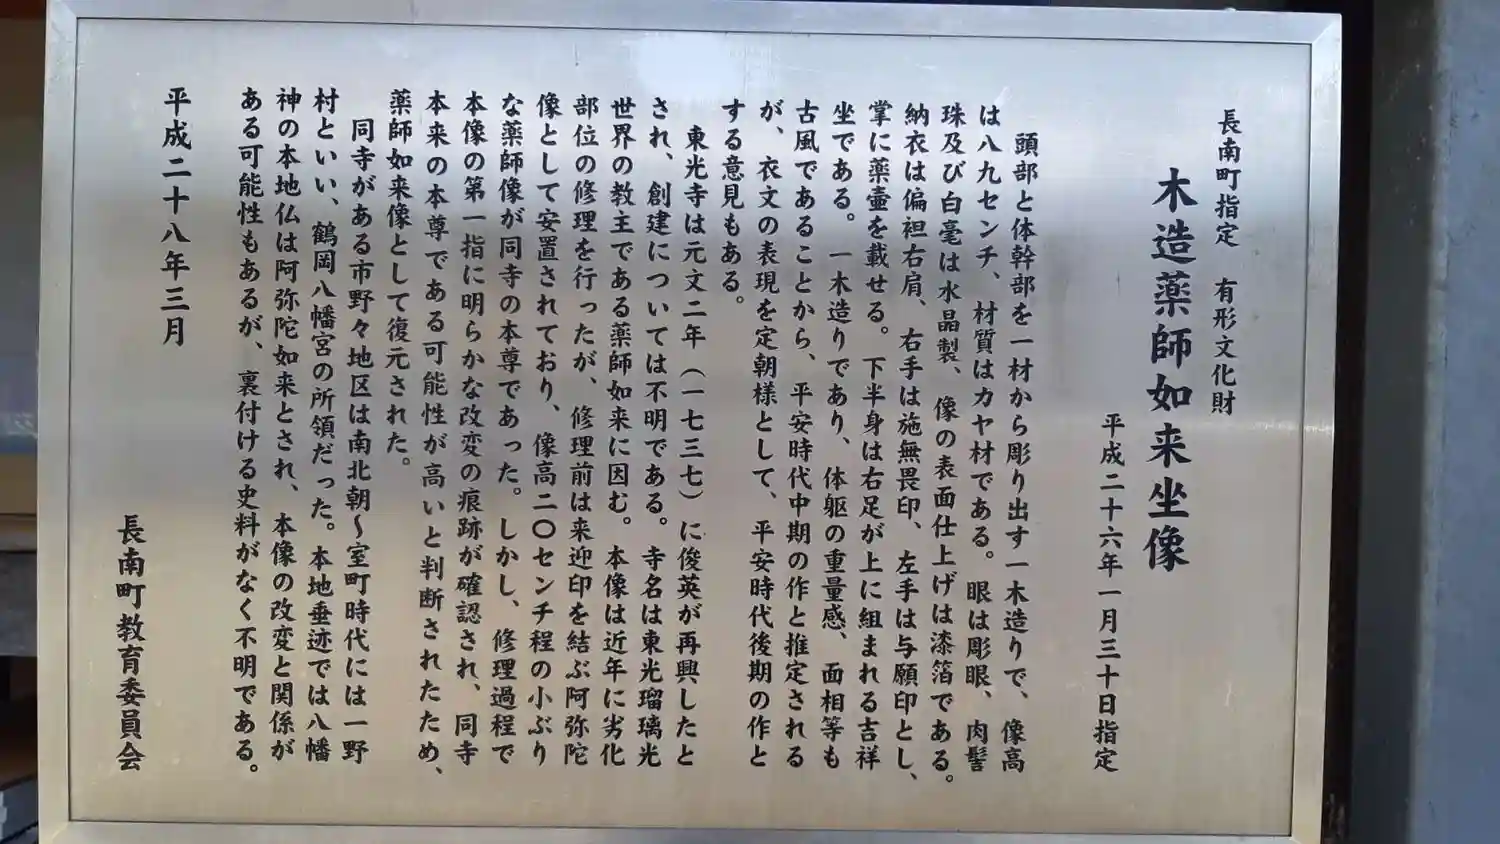 長南町指定　有形文化財
木造薬師如来坐像
平成二十六年一月三十日指定
頭部と体幹部を一材から彫り出す一木造りで、像高
は八九センチ、材質はカヤ材である。眼は彫眼、肉髻
珠及び白毫は水晶製、像の表面仕上げは漆箔である。
納衣は偏袒右肩、右手は施無畏印、左手は与願印とし、
掌に薬壷を載せる。下半身は右足が上に組まれる吉祥
坐である。一木造りであり、体躯の重量感、面相等も
古風であることから、平安時代中期の作と推定される
が、衣文の表現を定朝様として、平安時代後期の作と
する意見もある。
東光寺は元文二年（一七三七）に俊英が再興したと
され、創建については不明である。寺名は東光瑠璃光
世界の教主である薬師如来に因む。本像は近年に劣化
部位の修理を行ったが、修理前は来迎印を結ぶ阿弥陀
像として安置されており、像高二〇センチ程の小ぶり
な薬師像が同寺の本尊であった。しかし、修理過程で
本像の第一指に明らかな改変の痕跡が確認され、同寺
本来の本尊である可能性が高いと判断されたため、
薬師如来像として復元された。
同寺がある市野々地区は南北朝～室町時代には一野
村といい、鶴岡八幡宮の所領だった。本地垂迹では八幡
神の本地仏は阿弥陀如来とされ、本像の改変と関係が
ある可能性もあるが、裏付ける史料がなく不明である。
平成二十八年三月
長南町教育委員会